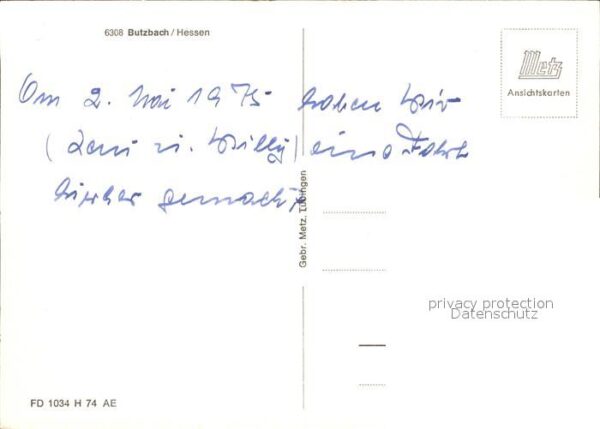 6308 Butzbach / Hessen
Metz
Ansichtskarten
Am 2. Mai 1975 haben wir
(Leni u. Willy) eine Fahrt
hierher gemacht.
Gebr. Metz, Tübingen
privacy protection
Datenschutz
FD 1034 H 74 AE